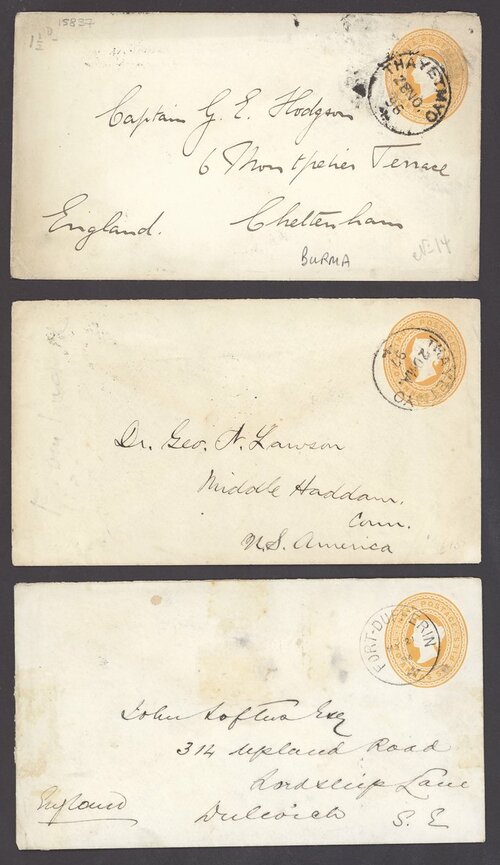 15837
1½d
THAYETMYO
28 NO
96
Captain G. E. Hodgson
6 Montpelier Terrace
Cheltenham
England.
BURMA
THAYETMYO
97
Dr. Geo. N. Lawson
Middle Haddam,
Conn.
U.S. America
POSTAGE
FORT-DUFFERIN
John Loftus Esq
314 Upland Road
Lordship Lane
Dulwich S. E
England